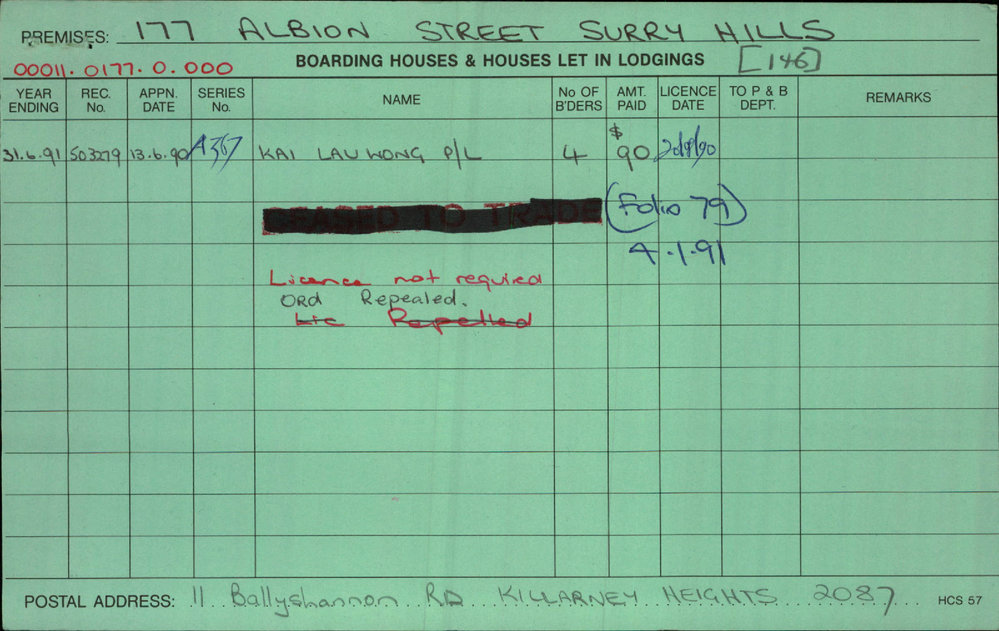 PREMISES: 177 ALBION STREET SURRY HILLS
00011.0177.0.000 BOARDING HOUSES & HOUSES LET IN LODGINGS [146]
YEAR ENDING REC. No. APPN. DATE SERIES No. NAME No OF B'DERS AMT. PAID LICENCE DATE TO P & B DEPT. REMARKS
31.6.91 503279 13.6.90 A367 KAI LAU WONG P/L 4 $90 20/8/90
CEASED TO TRADE (Folio 79)
4.1.91
Licence not required
ORD Repealed.
Lic Repelled
POSTAL ADDRESS: 11 Ballyshannon RD KILLARNEY HEIGHTS 2087 HCS 57